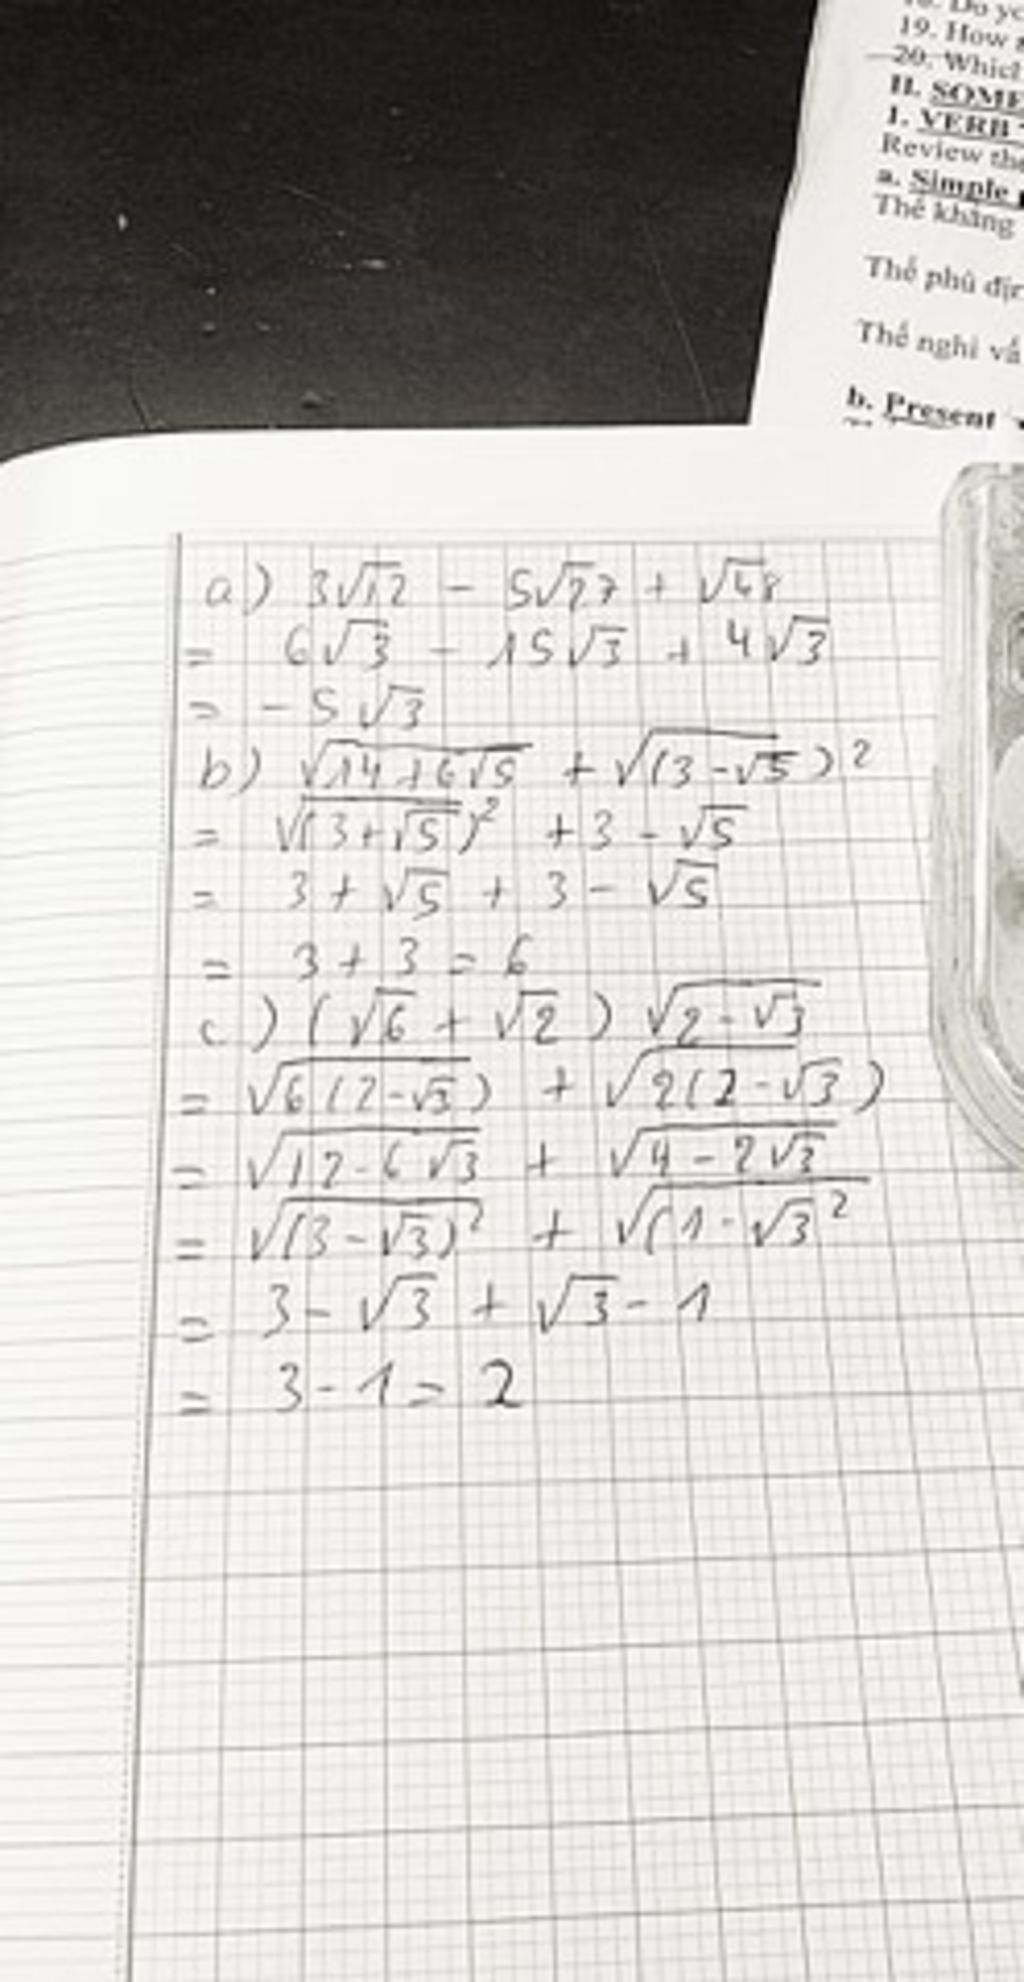 19. How
20. Which
II. SOME
1. VERB
Review the
a. Simple
Thể khẳng
Thể phủ địn
Thể nghi vấ
b. Present
a) 3√12 - 5√27 + √48
= 6√3 - 15√3 + 4√3
= -5√3
b) √(14+6√5) + √((3-√5)²)
= √((3+√5)²) + 3 - √5
= 3 + √5 + 3 - √5
= 3 + 3 = 6
c) (√6 + √2) √(2-√3)
= √(6(2-√3)) + √(2(2-√3))
= √(12-6√3) + √(4-2√3)
= √((3-√3)²) + √((1-√3²
= 3 - √3 + √3 - 1
= 3 - 1 = 2